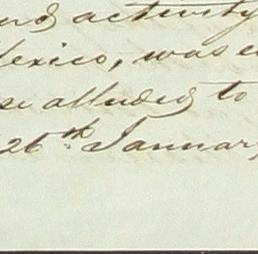 and activity
Mexico, was
se alluded to
26th January